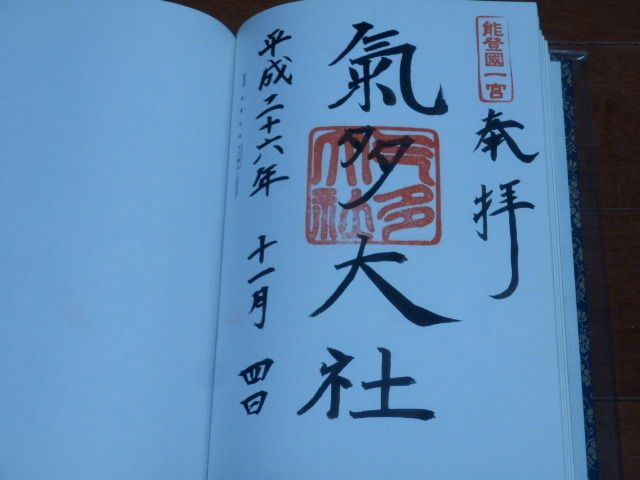 能登國一宮
奉拝
氣多大社
氣多大社
平成二十六年 十一月 四日